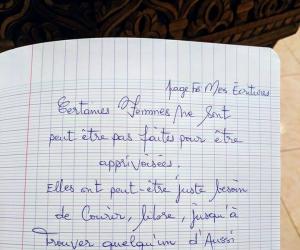 page 56 Mes Écritures
Certames Femmes ne sont
peut être pas faites pour être
apprivoisées.
Elles ont peut-être juste besoin
de Courir, libre, jusqu'à
Trouver quelqu'un d'Aussi